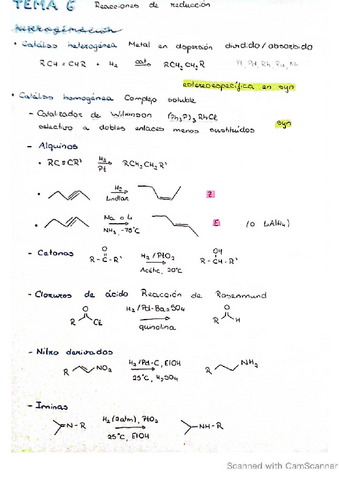 TEMA 6 Reacciones de reducción
Hidrogenación
• Catálisis heterogénea Metal en dispersión dividido/absorbido
RCH=CHR + H₂ cat. RCH₂CH₂R Ni, Pd, Rh, Ru, Ni
estereoespecífica en syn
• Catálisis homogénea Complejo soluble
- Catalizador de Wilkinson (Ph₃P)₃RhCl syn
selectivo a dobles enlaces menos sustituidos
- Alquinos
• RC≡CR' H₂ Pt RCH₂CH₂R'
• H₂ Lindlar Z
• Na o Li NH₃, -78°C E (o LiAlH₄)
- Cetonas R-C-R' O H₂/PtO₂ Acétic, 20°C OH R-CH-R'
- Cloruros de ácido Reacción de Rosenmund
R O Cl H₂/Pd-BaSO₄ quinolina R O H
- Nitro derivados
R NO₂ H₂/Pd-C, EtOH 25°C, H₂SO₄ R NH₂
- Iminas
=N-R H₂(2atm), PtO₂ 25°C, EtOH -NH-R
Scanned with CamScanner